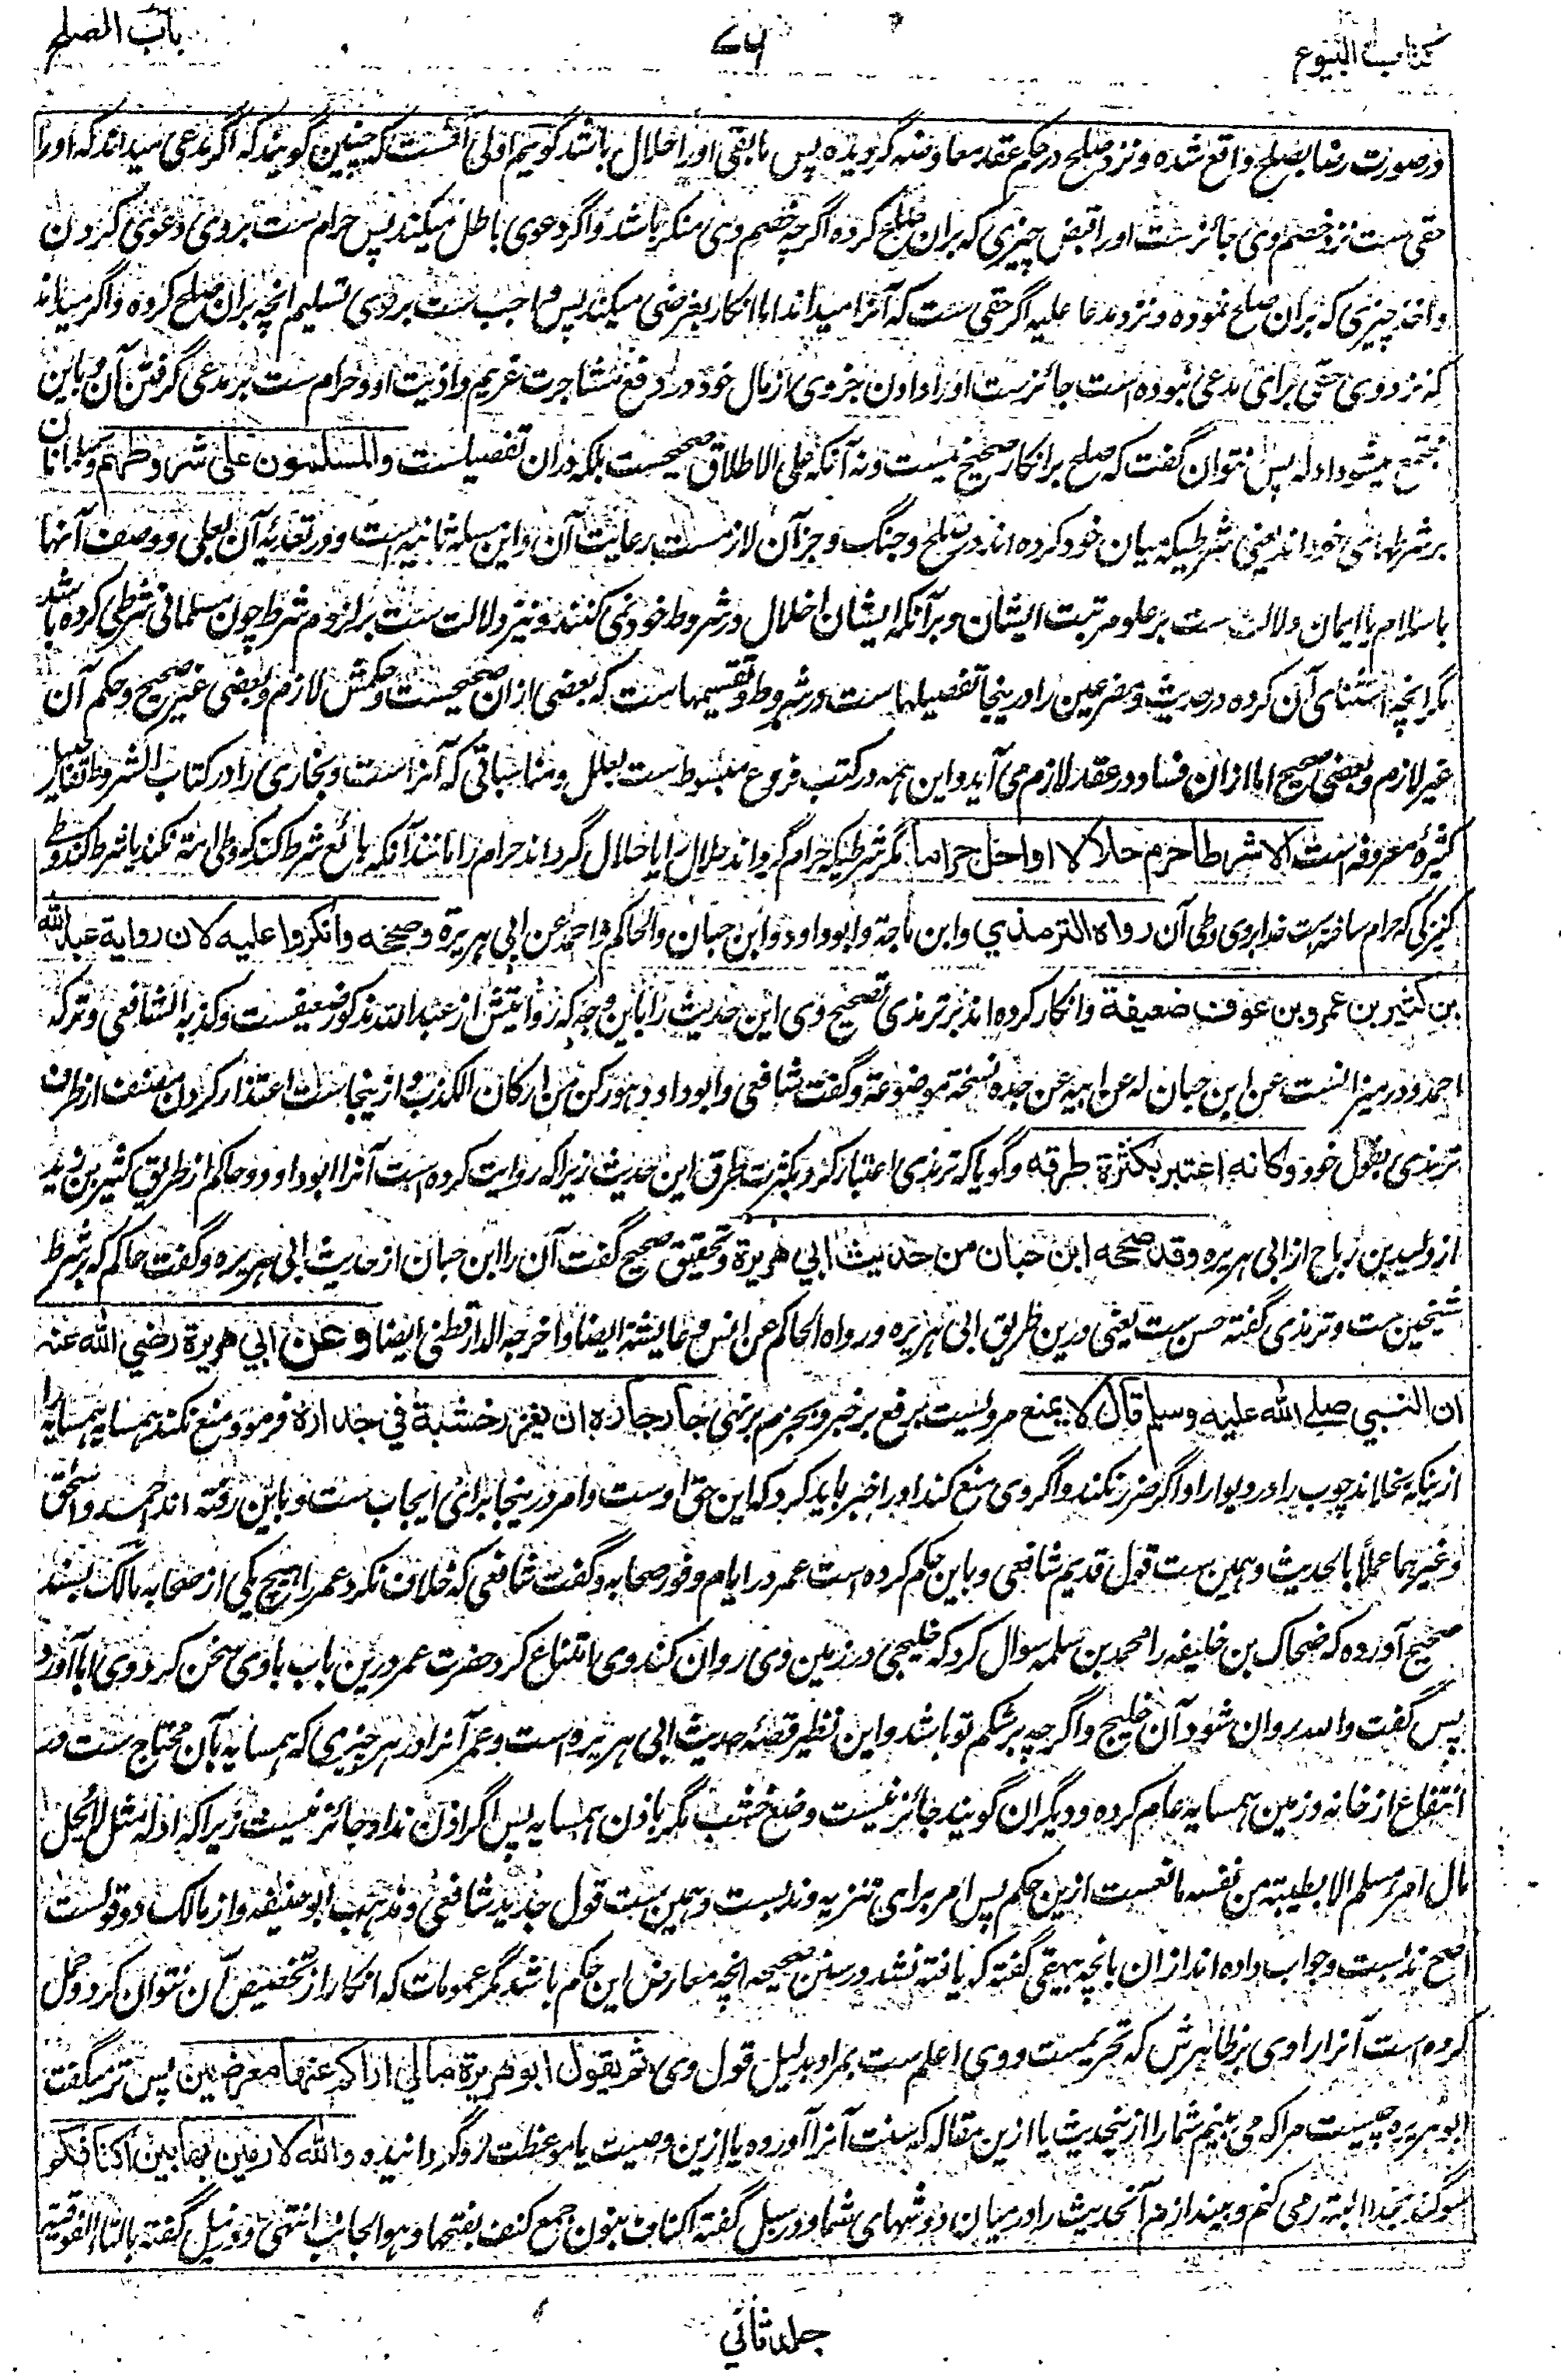 کتاب البیوع
۷۶
باب الصلح
درصورت رضا بصلح واقع شده و نزد صلح در حکم عقد معاوضه گردیده پس ما بقی او را حلال باشد گوئیم اولی آنست که چنین گویند که اگر مدعی میداند که او را
حقی ست نزد خصم وی جائزست او را قبض چیزی که بران صلح کرده اگرچه خصم وی منکر باشد و اگر دعوی باطل میکند پس حرام ست بروی دعوی کردن
و اخذ چیزی که بران صلح نموده و نزد مدعا علیه اگر حقی ست که آنرا میداند اما انکار بغرضی میکند پس واجب ست بروی تسلیم انچه بران صلح کرده و اگر میداند
که نزد وی حقی برای مدعی نبوده است جائزست او را دادن جزوی از مال خود در دفع مشاجرت غریم و اذیت او و حرام ست بر مدعی گرفتن آن و باین
مجتمع میشود ادله پس نتوان گفت که صلح بر انکار صحیح نیست و نه آنکه علی الاطلاق صحیحست بلکه دران تفصیلست والمسلمون علی شروطهم و مسلمانان
بر شرطهای خود اند یعنی شرطیکه میان خود کرده اند در صلح و جنگ و جز آن لازمست رعایت آن و این مسئله ثانیه است و در تعدیهٔ آن بعلی و وصف آنها
باسلام یا ایمان دلالت ست بر علو مرتبت ایشان و بر آنکه ایشان اخلال در شروط خود نمی کنند و نیز دلالت ست بر لزوم شرط چون مسلمانی شرطی کرده باشد
مگر انچه استثنای آن کرده در حدیث و مفرعین را درینجا تفصیلها ست در شروط و تقسیمها ست که بعضی ازان صحیحست و حکمش لازم و بعضی غیر صحیح و حکم آن
غیر لازم و بعضی صحیح اما ازان فساد در عقد لازم می آید و این همه در کتب فروع مبسوط ست بعلل و مناسباتی که آنراست و بخاری را در کتاب الشروط تفاصیل
کثیره معروفه است الا شرطا حرم حلالا او احل حراما مگر شرطیکه حرام گرداند حلال را یا حلال گرداند حرام را مانند آنکه بائع شرط کند که وطی امته نکند یا شرط کند وطی
کنیزکی که حرام ساخته ست خدا بروی وطی آن رواه الترمذی وابن ماجة وابوداود وابن حبان والحاکم واحمد عن ابی هریرة وصححه وانکروا علیه لان روایة عبد الله
بن کثیر بن عمرو بن عوف ضعیفة و انکار کرده اند بر ترمذی تصحیح وی این حدیث را باین وجه که روایتش از عبد الله مذکور ضعیفست و کذبه الشافعی و ترکه
احمد و در میزانست عن ابن حبان له عن ابیه عن جده نسخة موضوعة و گفت شافعی و ابوداود هو رکن من ارکان الکذب و از ینجاست اعتذار کردن مصنف از طرف
ترمذی بقول خود وکانه اعتبر بکثرة طرقه و گویا که ترمذی اعتبار کرد بکثرت طرق این حدیث زیرا که روایت کرده است آنرا ابوداود و حاکم از طریق کثیر بن زید
از ولید بن رباح از ابی هریره وقد صححه ابن حبان من حدیث ابی هریرة و تحقیق صحیح گفت آن را ابن حبان از حدیث ابی هریره و گفت حاکم که بر شرط
شیخین ست و ترمذی گفته حسن ست یعنی درین طریق ابی هریره و رواه الحاکم عن انس و عایشة ایضا و اخرجه الدارقطنی ایضا وعن ابی هریرة رضی الله عنه
ان النبی صلے الله علیه وسلم قال لا یمنع مرویست برفع بر خبر و بجزم بر نهی جار جاره ان یغرز خشبة فی جداره فرمود منع نکند همسایه همسایه را
ازینکه بخلاند چوب را در دیوار او اگر ضرر نکند و اگر وی منع کند او را خبر باید کرد که این حق اوست و امر درینجا برای ایجاب ست و باین رفته اند احمد و اسحق
و غیرهما عملًا بالحدیث و همین ست قول قدیم شافعی و باین حکم کرده است عمر در ایام وفور صحابه و گفت شافعی که خلاف نکرد عمر را هیچ یکی از صحابه مالک بسند
صحیح آورده که ضحاک بن خلیفه را محمد بن سلمه سوال کرد که خلیجی در زمین وی روان کند وی امتناع کرد حضرت عمر درین باب باوی سخن کرد وی ابا آورد
پس گفت والله روان شود آن خلیج و اگرچه بر شکم تو باشد و این نظیر قصهٔ حدیث ابی هریره است و عمر آنرا در هر چیزی که همسایه بآن محتاج ست در
انتفاع از خانه و زمین همسایه عام کرده و دیگران گویند جائز نیست وضع خشب مگر باذن همسایه پس اگر اذن نداد جائز نیست زیرا که ادله مثل لا یحل
مال امرء مسلم الا بطیبة من نفسه مانعست ازین حکم پس امر برای تنزیه و ندبست و همین ست قول جدید شافعی و مذهب ابو حنیفه و از مالک دو قولست
اصح ندبست و جواب داده اند ازان بانچه بیهقی گفته که یافته نشد در سنن صحیحه انچه معارض این حکم باشد مگر عمومات که انکار از تخصیص آن نتوان کرد و حمل
کرده است آنرا راوی بر ظاهرش که تحریمست و وی اعلم ست بمراد بدلیل قول وی ثم یقول ابو هریرة مالی اراکم عنها معرضین پس تر میگفت
ابو هریره چیست مرا که می بینم شما را ازین حدیث یا ازین مقاله که سنت آنرا آورده یا ازین وصیت یا موعظت روگردانیده والله لارمین بها بین اکتافکم
سوگند بخدا البته رمی کنم و بیندازم آنحدیث را درمیان دوشهای شما و در سبل گفته اکناف بنون جمع کنف بفتحها و هو الجانب انتهی و در نیل گفته بالتاء الفوقیة
جلد ثانی